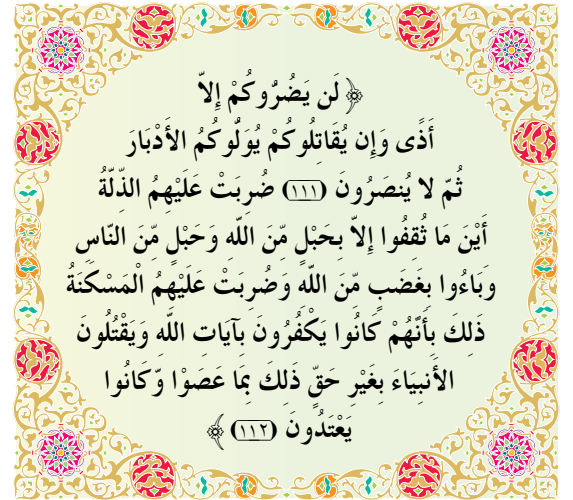 ﴿ لَن يَضُرُّوكُمْ إِلاّ
أَذًى وَإِن يُقَاتِلُوكُمْ يُوَلُّوكُمُ الأَدْبَارَ
ثُمّ لا يُنصَرُونَ (١١١) ضُرِبَتْ عَلَيْهِمُ الذّلّةُ
أَيْنَ مَا ثُقِفُوا إِلاّ بِحَبْلٍ مّنَ اللّهِ وَحَبْلٍ مّنَ النّاسِ
وَبَاءُوا بِغَضَبٍ مّنَ اللّهِ وَضُرِبَتْ عَلَيْهِمُ الْمَسْكَنَةُ
ذَلِكَ بِأَنّهُمْ كَانُوا يَكْفُرُونَ بِآيَاتِ اللّهِ وَيَقْتُلُونَ
الأَنبِيَاءَ بِغَيْرِ حَقّ ذَلِكَ بِمَا عَصَوْا وّكَانُوا
يَعْتَدُونَ (١١٢) ﴾